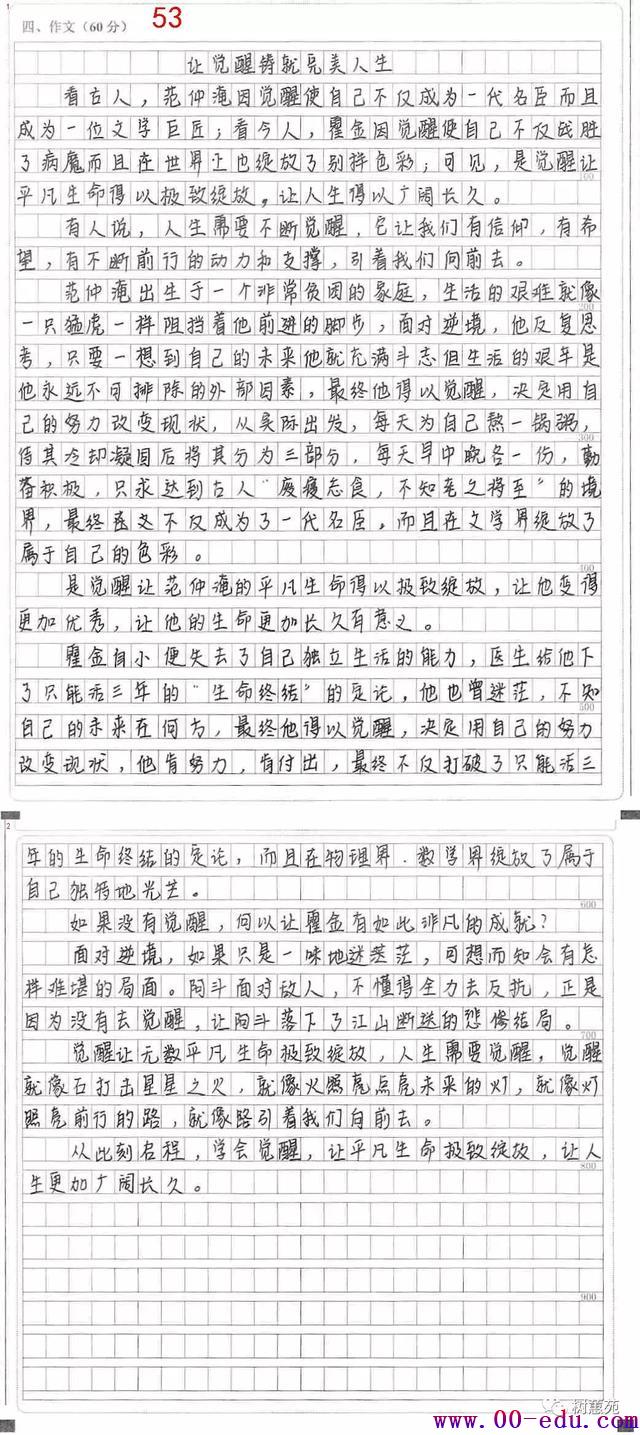 四、作文（60分）
53
让觉醒铸就完美人生
看古人，范仲淹因觉醒使自己不仅成为一代名臣而且
成为一位文学巨匠；看今人，瞿金因觉醒使自己不仅战胜
了病魔而且在世界上也绽放了别样色彩；可见，是觉醒让
100
平凡生命得以极致绽放。让人生得以广阔长久。
有人说，人生需要不断觉醒，它让我们有信仰，有希
望，有不断前行的动力和支撑，引着我们向前去。
范仲淹出生于一个非常贫困的家庭，生活的艰难就像
200
一只猛虎一样阻挡着他前进的脚步，面对逆境，他反复思
考，只要一想到自己的未来他就充满斗志但生活的艰辛是
他永远不可排除的外部因素，最终他得以觉醒，决定用自
己的努力改变现状，从实际出发，每天为自己熬一锅粥，
300
待其冷却凝固后将其分为三部分，每天早中晚各一份，勤
奋积极，只求达到古人“废寝忘食，不知老之将至”的境
界，最终不仅成为了一代名臣。而且在文学界绽放了
属于自己的色彩。
400
是觉醒让范仲淹的平凡生命得以极致绽放，让他变得
更加优秀，让他的生命更加长久有意义。
瞿金自小便失去了自己独立生活的能力，医生给他下
了只能活三年的“生命终结”的定论，他也曾迷茫，不知
500
自己的未来在何方，最终他得以觉醒，决定用自己的努力
改变现状，他肯努力，肯付出，最终不仅打破了只能活三
年的生命终结的定论，而且在物理界．数学界绽放了属于
自己独特地光芒。
600
如果没有觉醒，何以让瞿金有如此非凡的成就？
面对逆境，如果只是一味地迷茫，可想而知会有怎
样难堪的局面。阿斗面对敌人，不懂得全力去反抗，正是
因为没有去觉醒，让阿斗落下了江山断送的悲惨结局。
700
觉醒让无数平凡生命极致绽放，人生需要觉醒，觉醒
就像石打击星星之火，就像火照亮点亮未来的灯，就像灯
照亮前行的路，就像路引着我们向前去。
从此刻启程，学会觉醒，让平凡生命极致绽放，让人
800
生更加广阔长久。
900
树蕙苑
www.00-edu.com